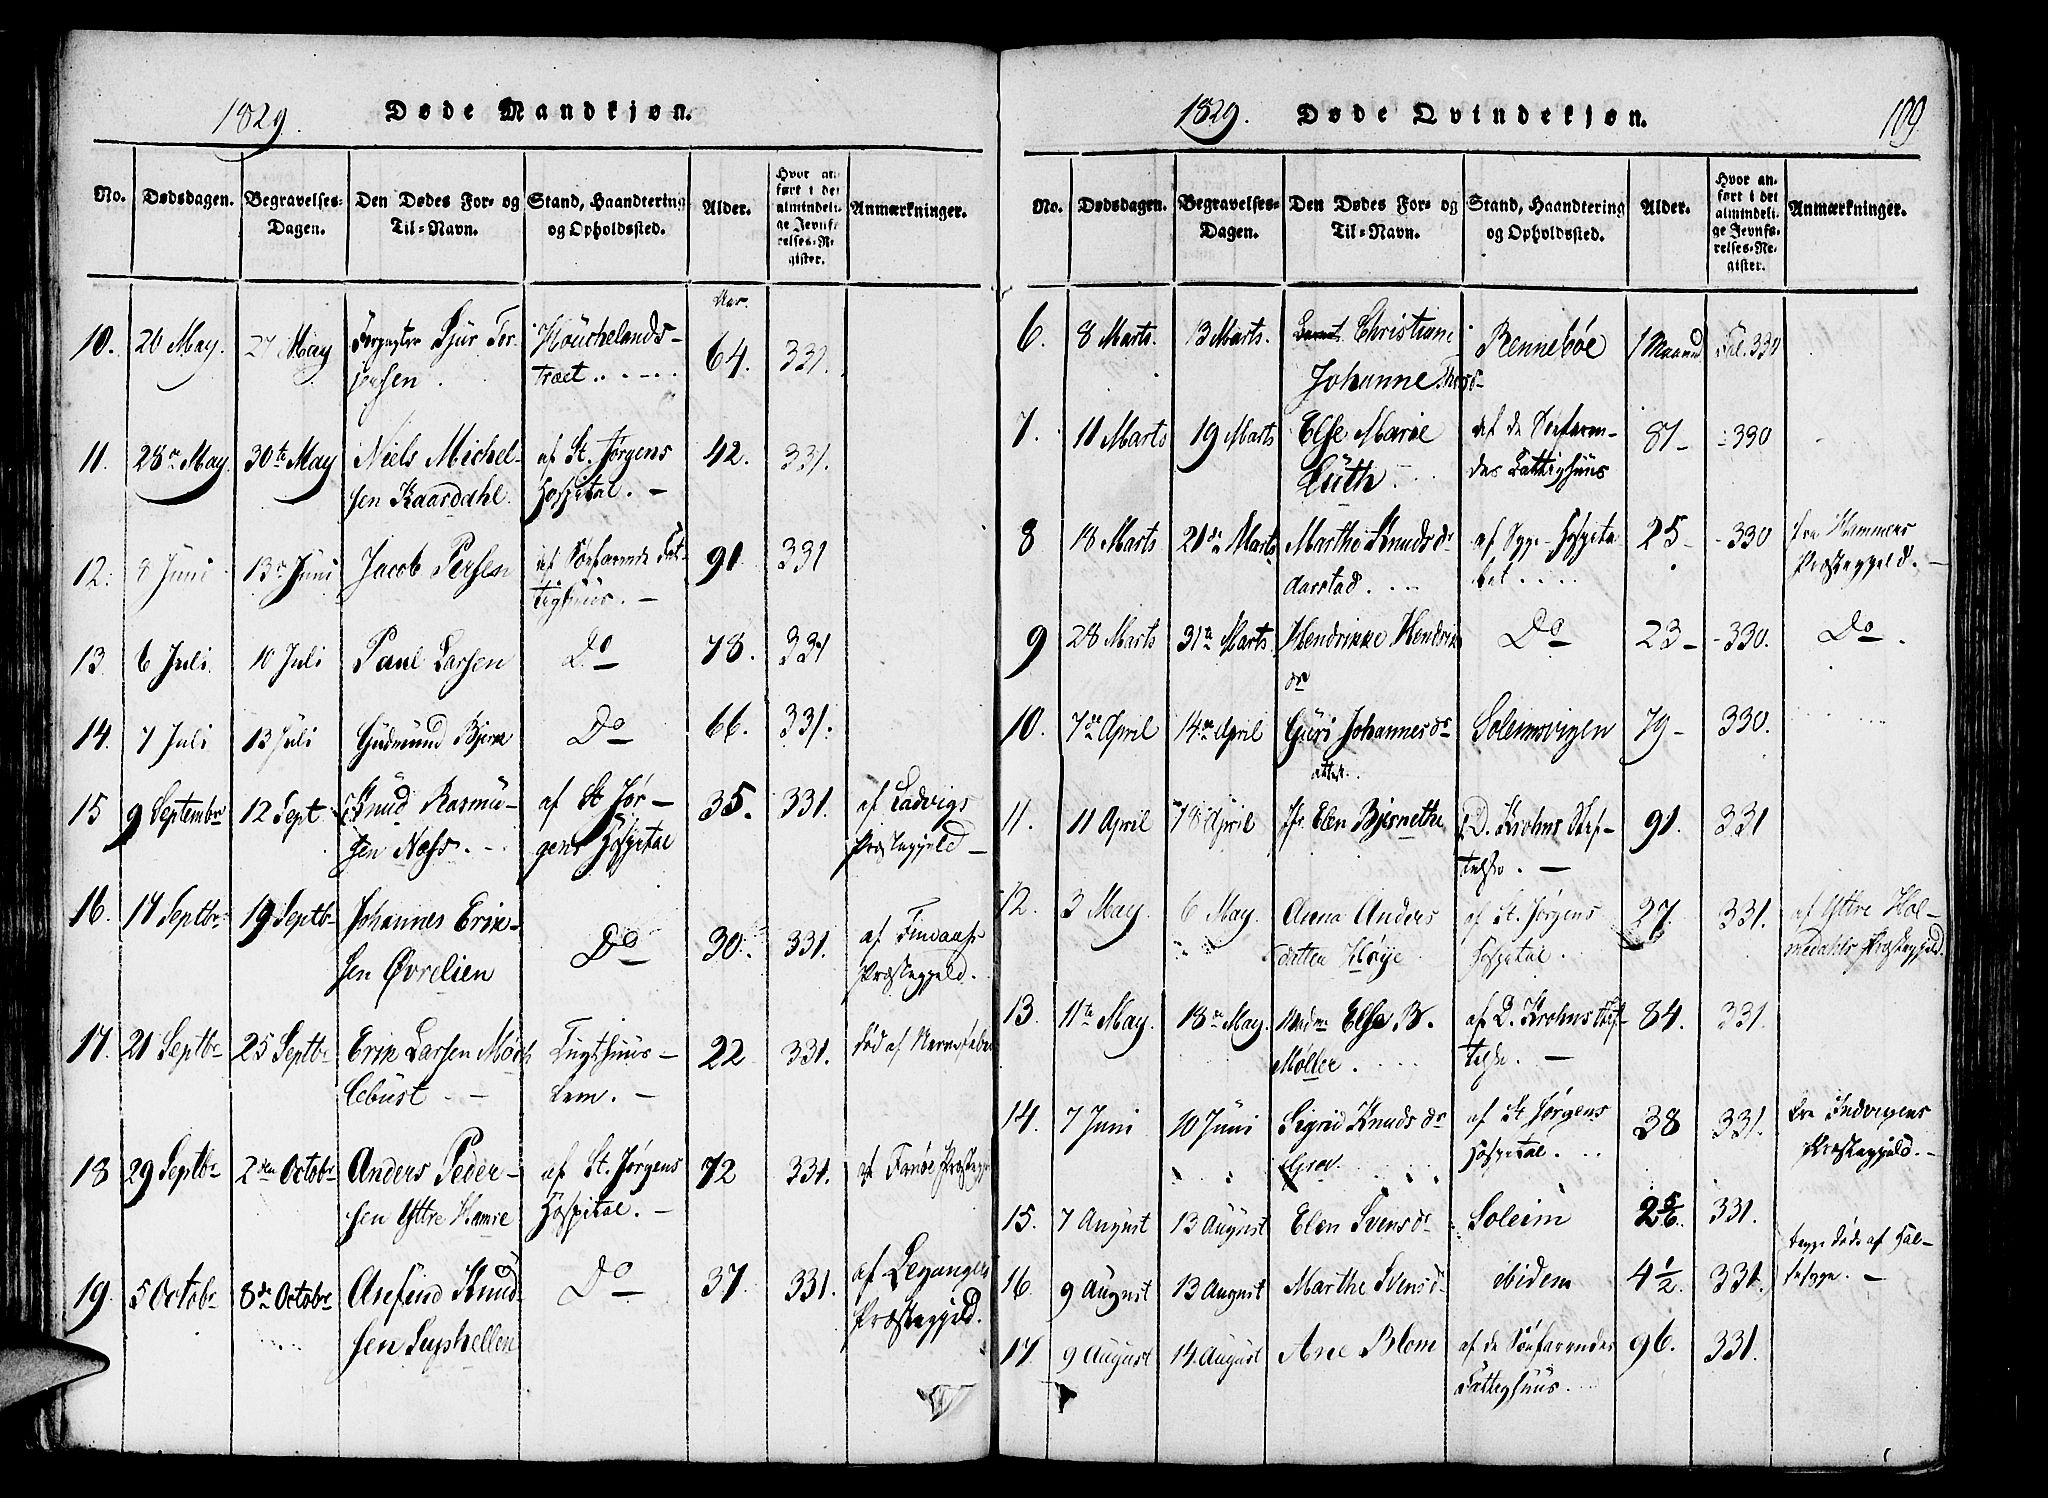 1829. Døde Mandkjøn.
No. Dødsdagen. Begravelses-Dagen. Den Dødes For- og Til-Navn. Stand, Haandtering og Opholdssted. Alder. Hvor anført i det almindelige Jevnførelses-Register. Anmærkninger.
Aar.
10. 20 May. 27 May Sjur Tor- 64. 331.
træet
11. 28de May. 30te May Niels Michel- af St. Jørgens 42. 331.
sen Kaardahl. Hospital. —
12. 8 Juni 13de Juni Jacob Persen af Søefarende Fat- 91 331
tighuus. —
13. 6 Juli. 10 Juli Paul Larsen Do 78. 331
14. 7 Juli 13 Juli Gudmund Bjerk Do 66. 331.
15 9 Septembr 12 Sept. Knud Rasmu- af St. Jør- 35. 331. af Ladvigs
sen Næss. gens Hospital Præstegjeld —
16. 17 Septbr 19 Septbr Johannes Erik- Do 30. 331. af Findaas
sen Øvrelien Præstegjeld.
17. 21 Septbr 25 Septbr Erik Larsen Mørch Tugthuus- 22 331. død af Nervefeber
Ebust lem. —
18 29 Septbr 2den Octobr Anders Peder- af St. Jørgens 72 331. af Præstegj
sen Yttre Hamre Hospital. —
19. 5 Octobr 8de Octobr Arefind Knud- Do 37. 331. af Leganger
sen Suphellen Præstegjeld.
1829. Døde Qvindekjøn. 109.
No. Dødsdagen. Begravelses-Dagen. Den Dødes For- og Til-Navn. Stand, Haandtering og Opholdssted. Alder. Hvor anført i det almindelige Jevnførelses-Register. Anmærkninger.
6. 8 Marts. 13 Marts. Christiane Rennebøe 1 Maaned Fol. 330
Johanne
7. 11 Marts 19 Marts Else Marie af de Søefaren- 87 - 330
Lüth des Fattighuus
8 18 Marts 21de Marts Marthe Knudsdr af Syge-Hospita- 25 - 330 fra Hammers
Aarstad. let Præstegjeld. —
9 28 Marts 31te Marts. Hendrikke Hendriks Do 23 - 330. Do
dr
10. 7de April 14de April Guri Johannesdr Solemsvigen 79 - 330.
11. 11 April 18 April Jfr. Elen Bjernethe D. Krohns Stif- 91. 331
telse. —
12. 3 May. 6 May. Anna Anders af St. Jørgens 27. 331. af Yttre Hol-
datter Kløvje. Hospital. medahls Præstegjeld.
13. 11te May. 18de May. Madme Else B. af D. Krohns Stif- 84. 331.
Møller. telse. —
14. 7 Juni 10 Juni Sigrid Knudsdr af St. Jørgens 38 331. fra Indvigens
Grov. Hospital. Præstegjeld. —
15. 7 August 13 August Elen Svensdr Soleim 2 5/6. 331. begge døde af Hal-
16. 9 August 13 August Marthe Svensdr ibidem 4 1/2. 331. sesyge. —
17 9 August 14 August Ane Blom af de Søefarendes 96. 331.
Fattighuus.